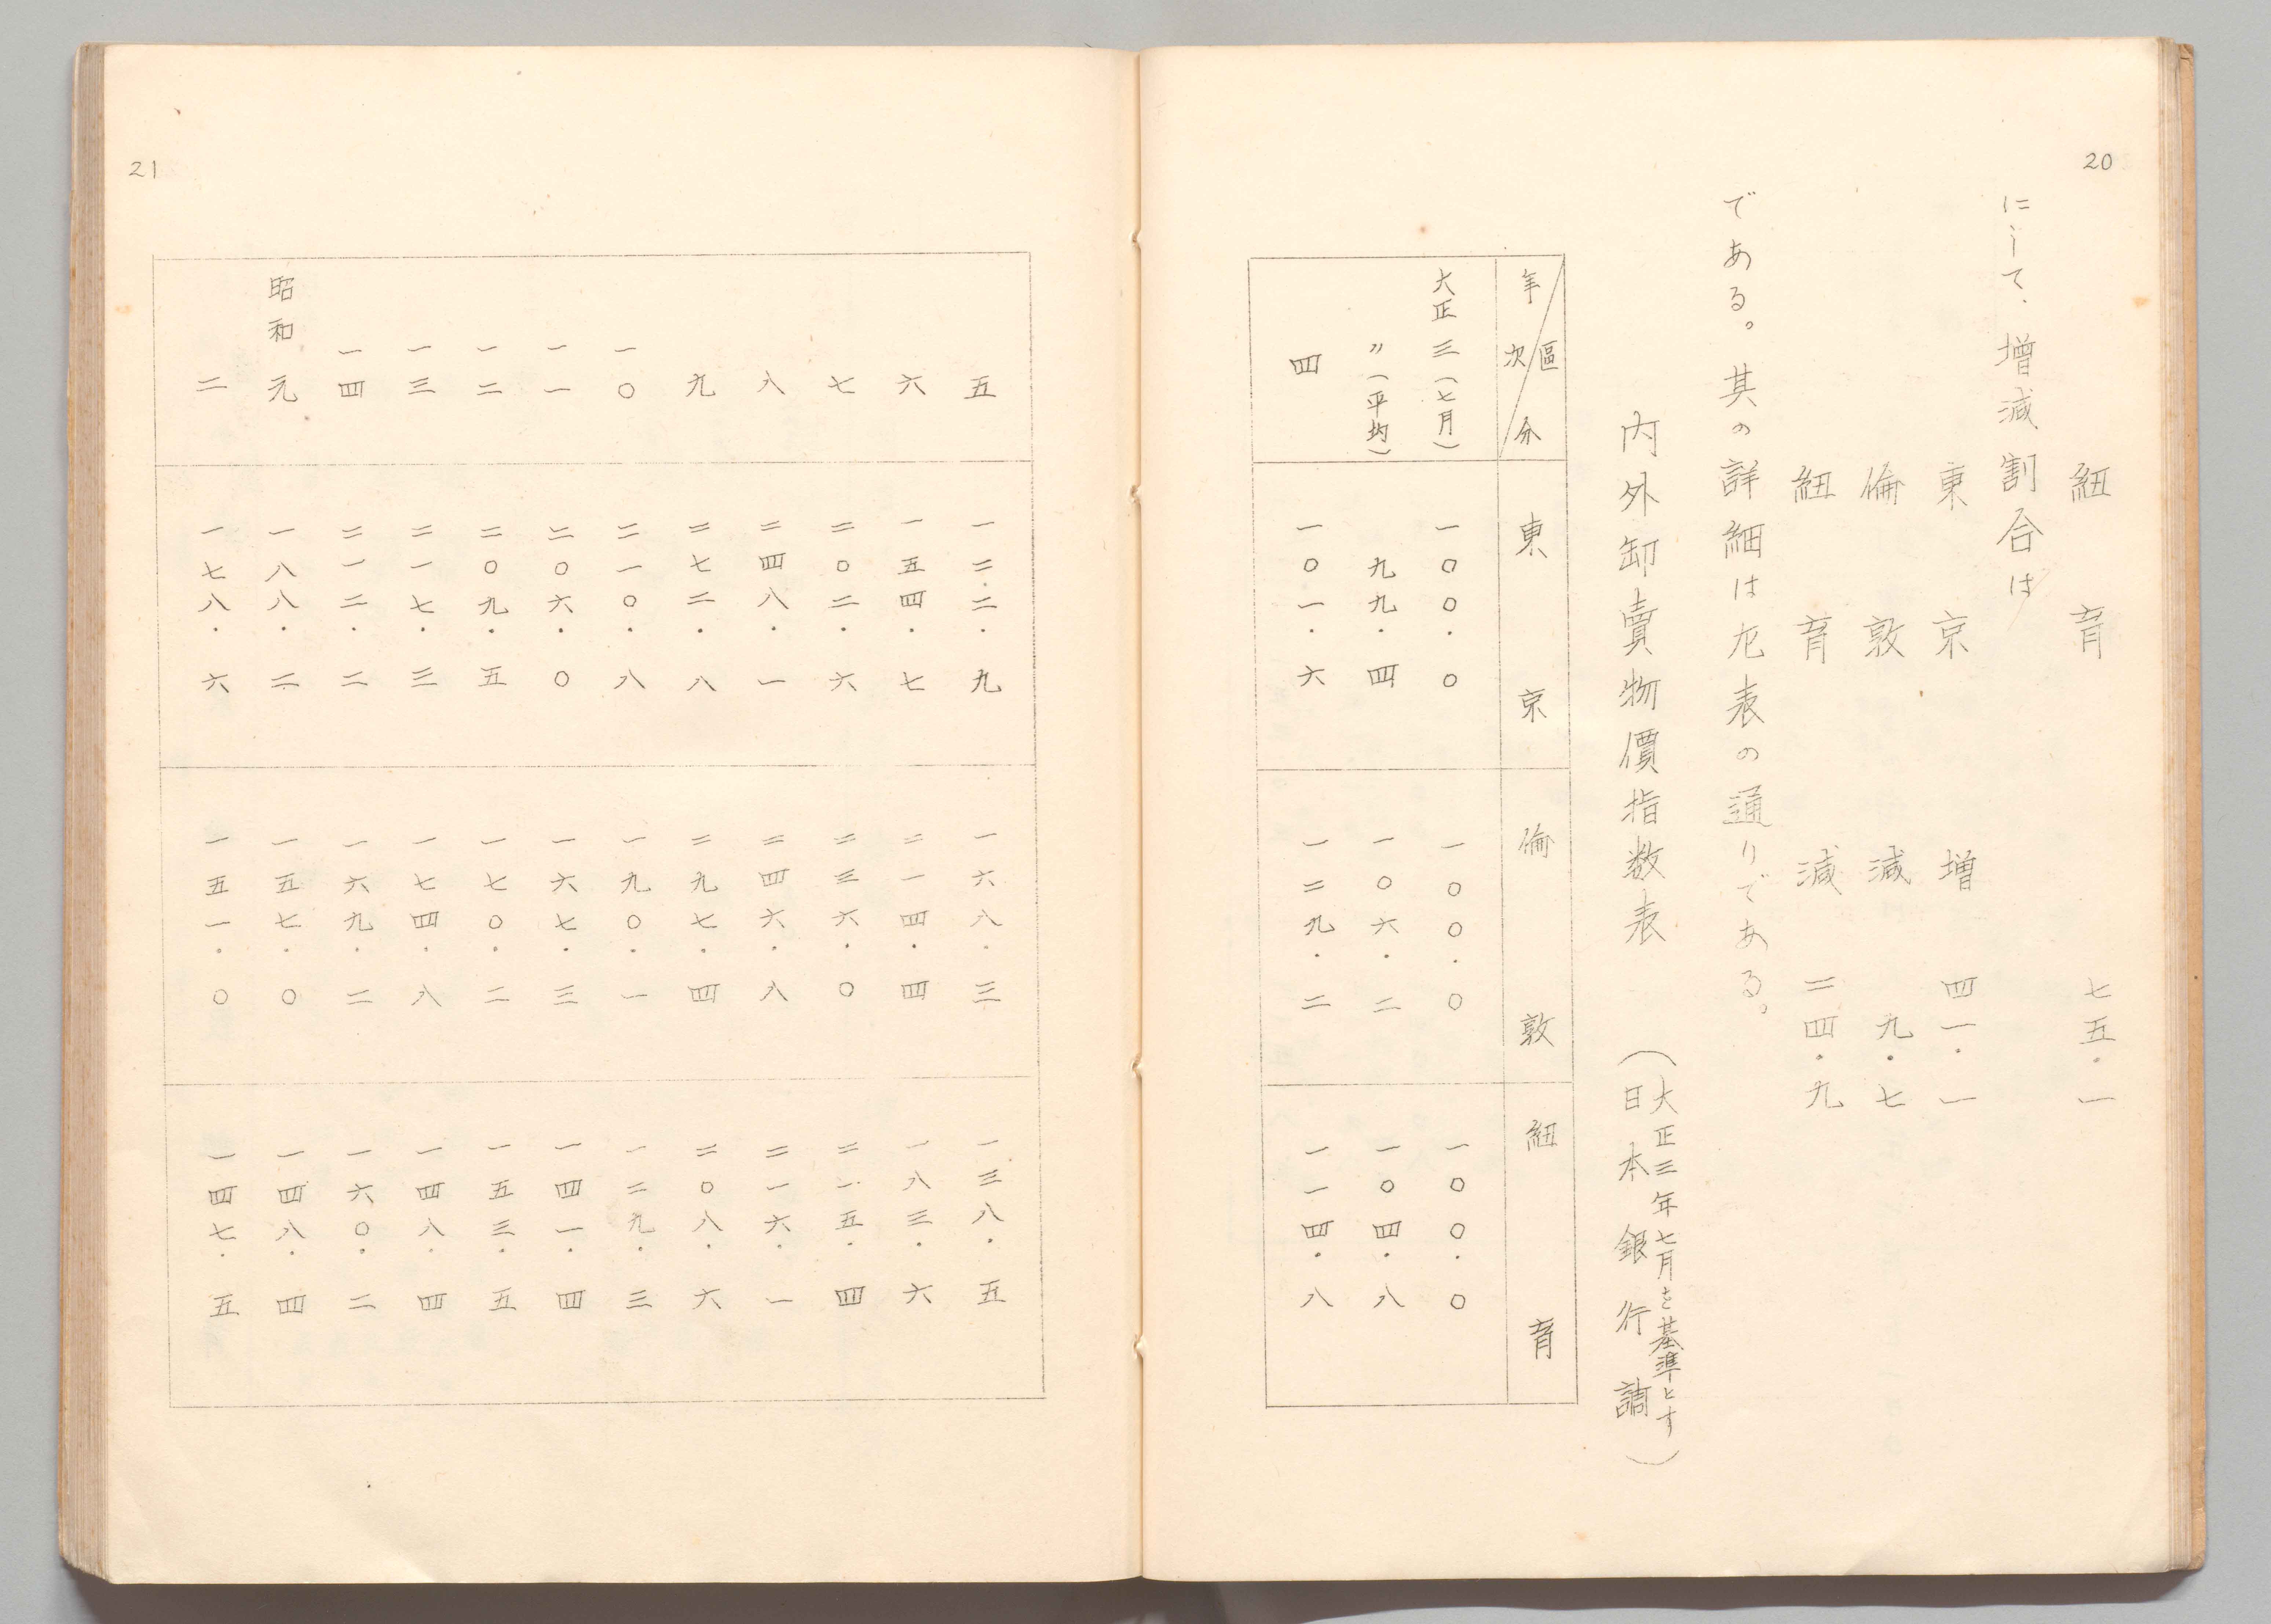 20
紐育 七五・一
にして、増減割合は
東京 増 四一・一
倫敦 減 九・七
紐育 減 二四・九
である。其の詳細は左表の通りである。
内外卸賣物價指数表
(大正三年七月を基準とす
日本銀行調)
年次 區分 東京 倫敦 紐育
大正三(七月) 一〇〇・〇 一〇〇・〇 一〇〇・〇
〃(平均) 九九・四 一〇六・二 一〇四・八
四 一〇一・六 一二九・二 一一四・八
21
五 一二二・九 一六八・三 一三八・五
六 一五四・七 二一四・四 一八三・六
七 二〇二・六 二三六・〇 二一五・四
八 二四八・一 二四六・八 二一六・一
九 二七二・八 二九七・四 二〇八・六
一〇 二一〇・八 一九〇・一 一二九・三
一一 二〇六・〇 一六七・三 一四一・四
一二 二〇九・五 一七〇・二 一五三・五
一三 二一七・三 一七四・八 一四八・四
一四 二一二・二 一六九・二 一六〇・二
昭和元 一八八・二 一五七・〇 一四八・四
二 一七八・六 一五一・〇 一四七・五